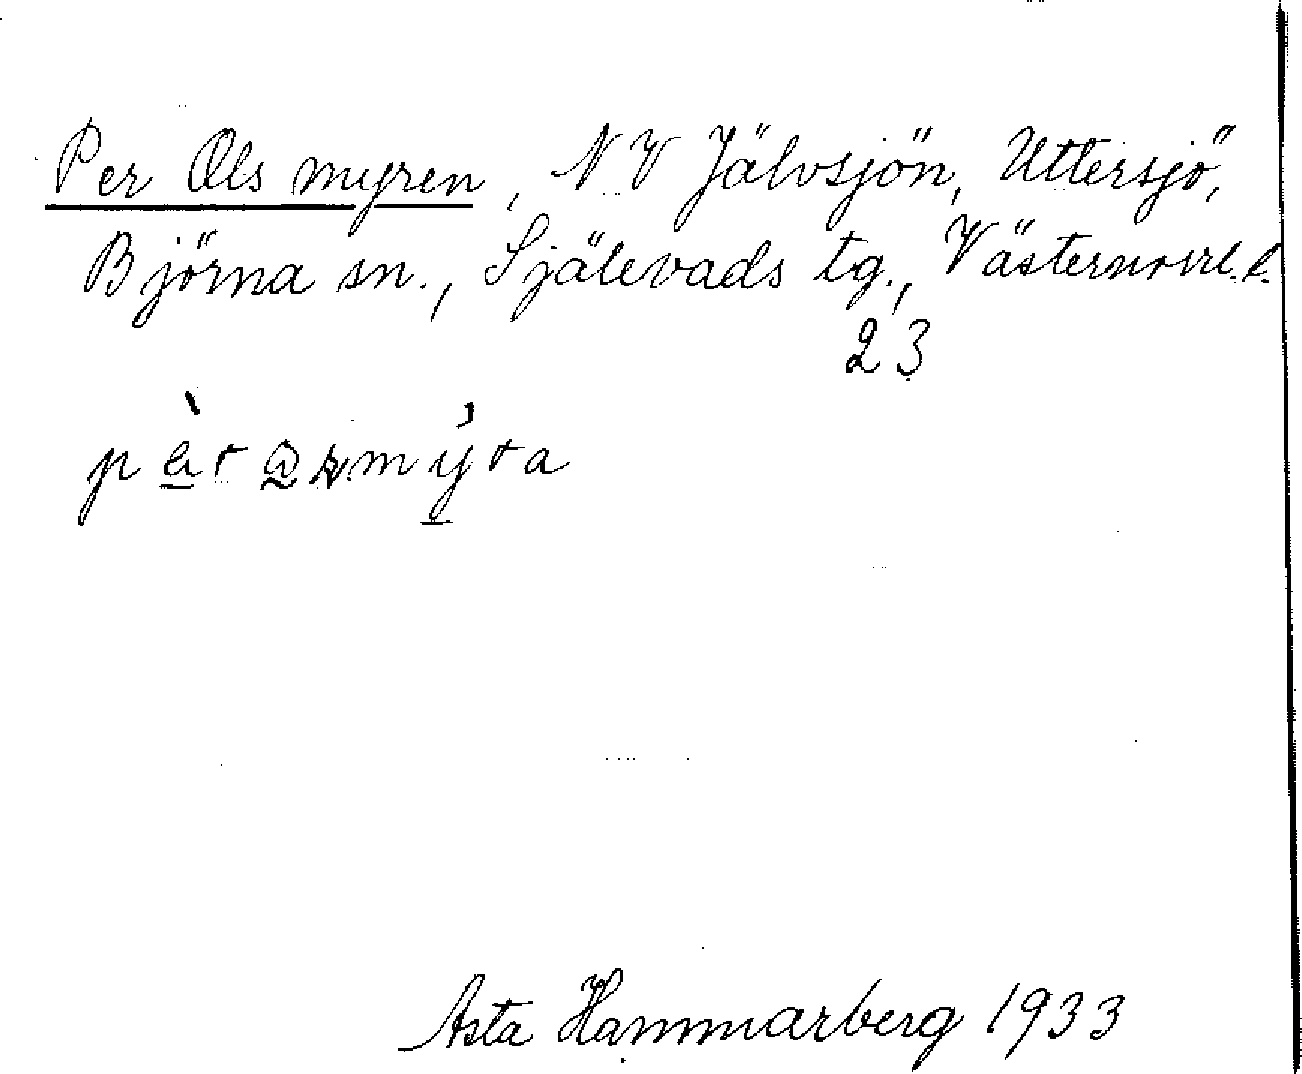 Per Ols myren, NV Jälvsjön, Uttersjö,
Björna sn., Själevads tg., Västernorrl. l.
23
Asta Hammarberg 1933